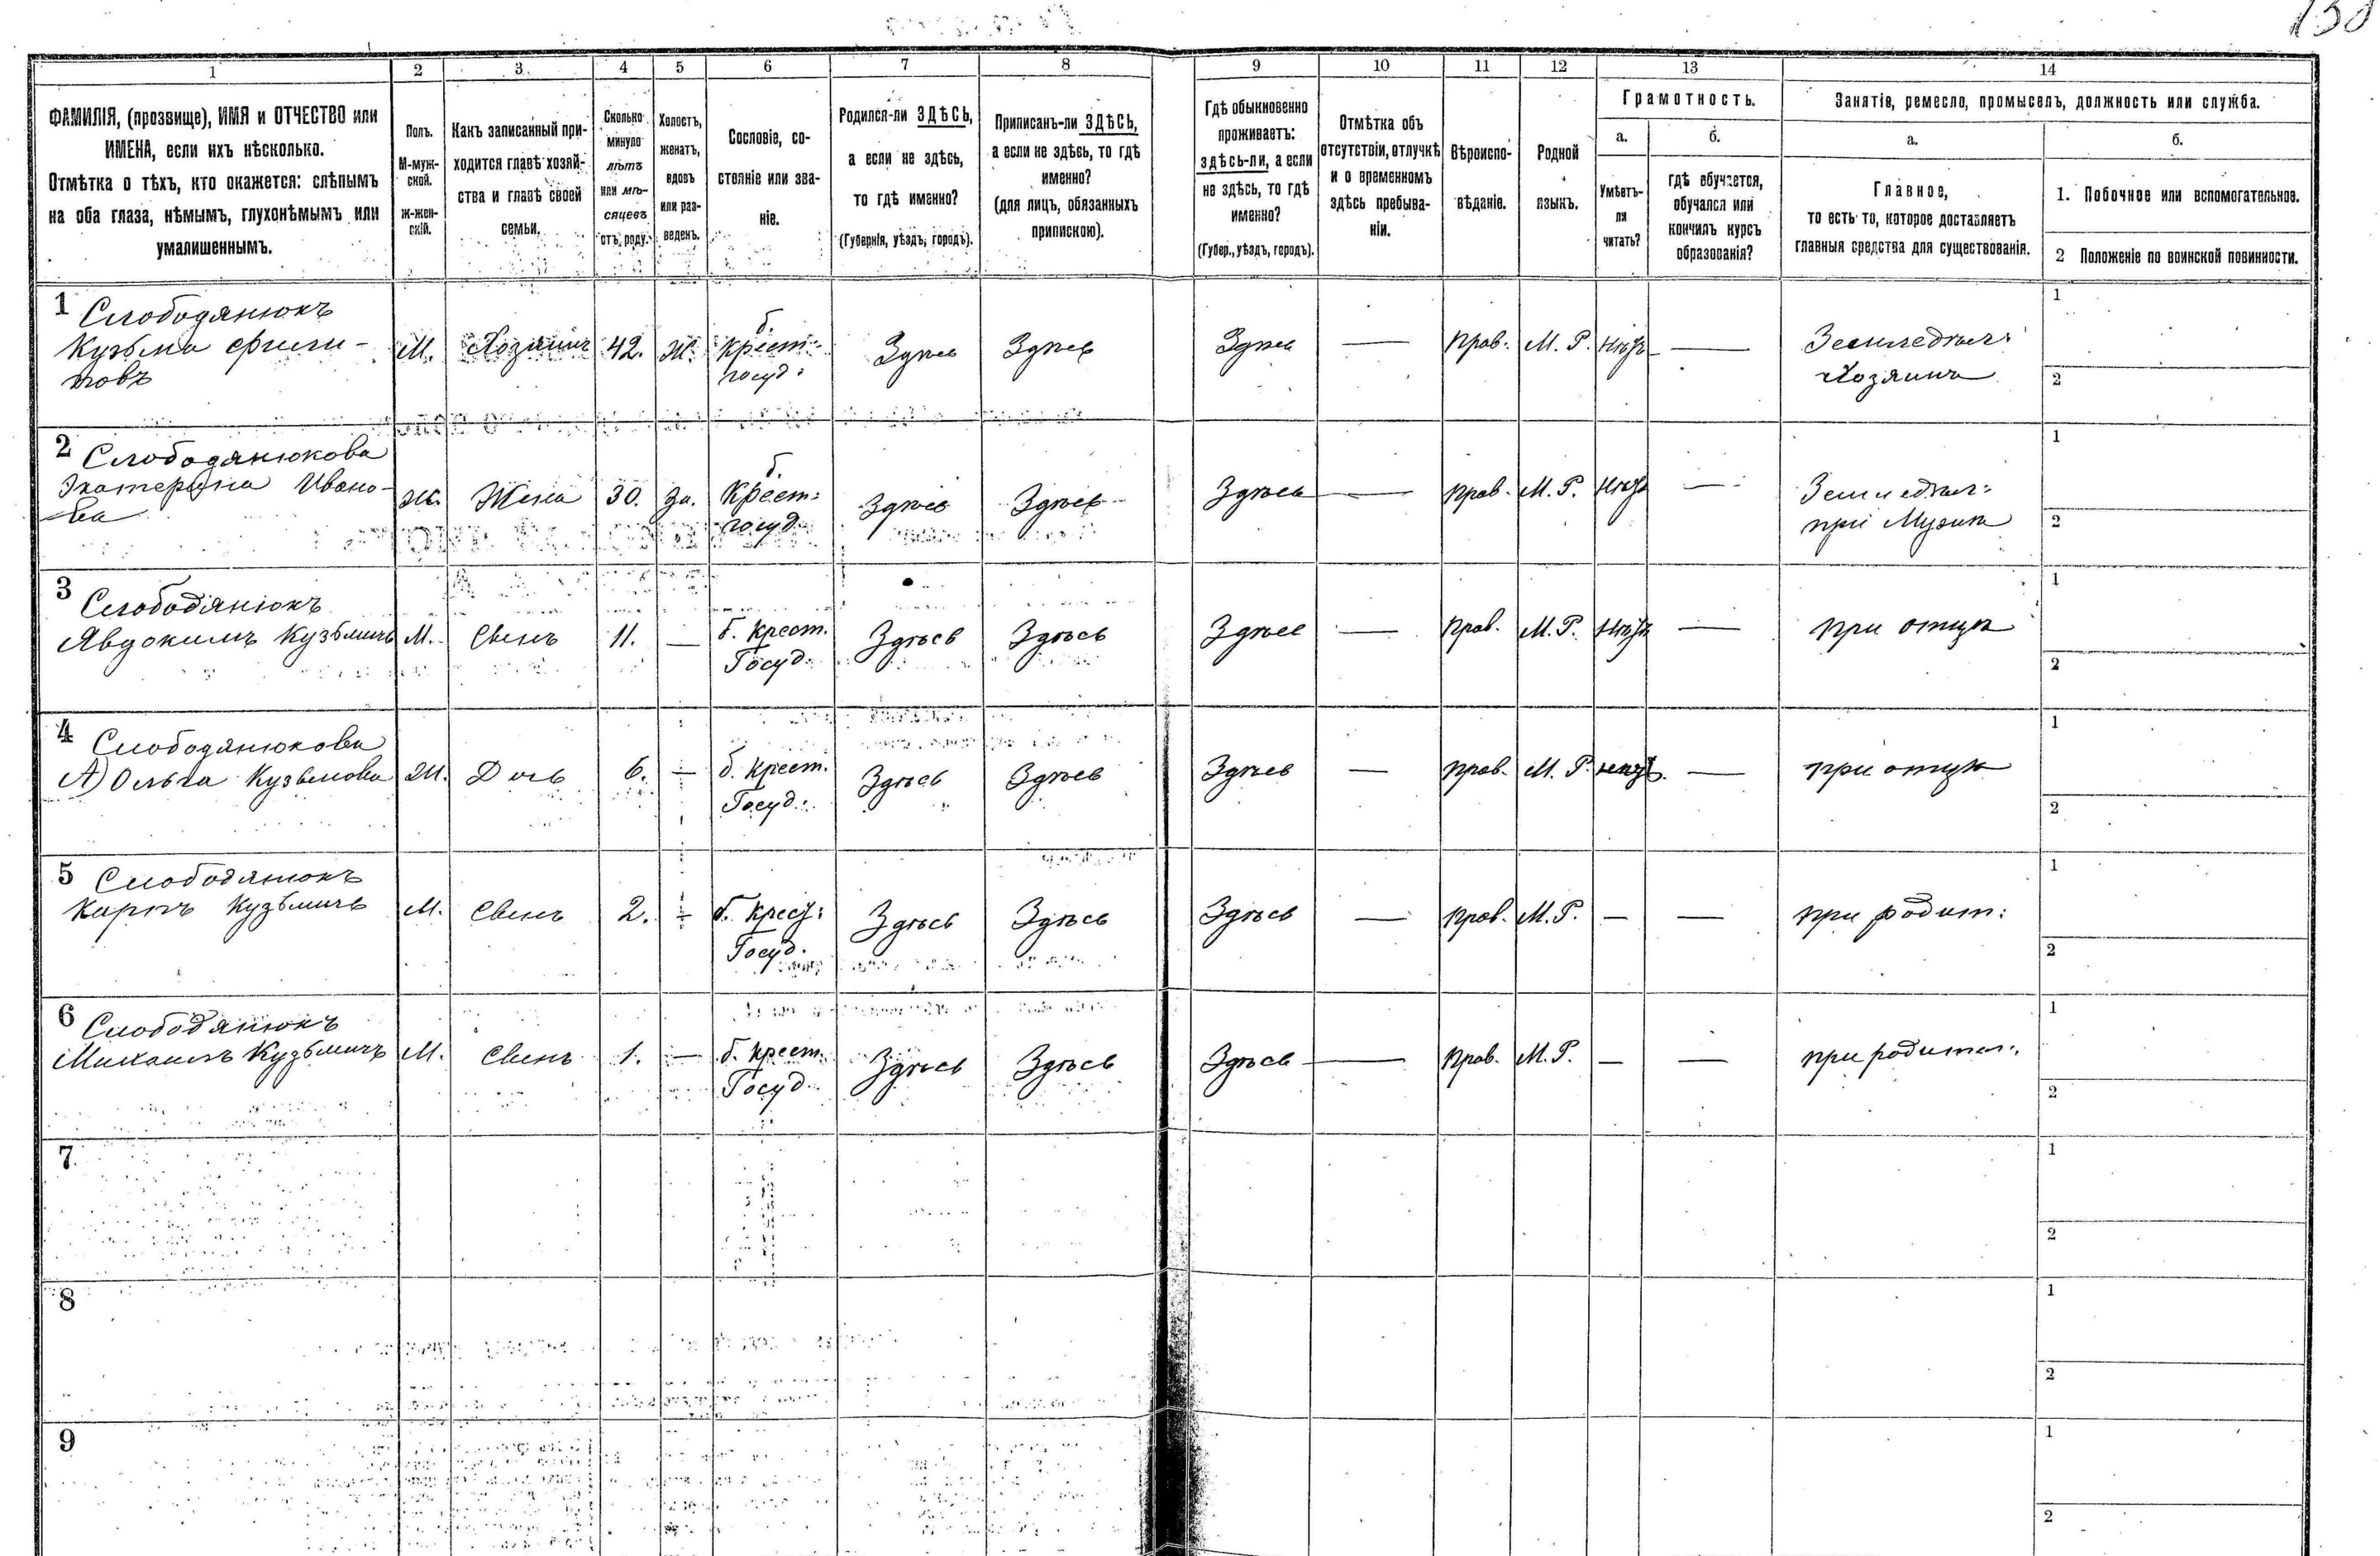 130
1 2 3 4 5 6 7 8 9 10 11 12 13 14
ФАМИЛІЯ, (прозвище), ИМЯ и ОТЧЕСТВО или
ИМЕНА, если ихъ нѣсколько.
Отмѣтка о тѣхъ, кто окажется: слѣпымъ
на оба глаза, нѣмымъ, глухонѣмымъ или
умалишеннымъ.
Полъ.
М-муж-
ской.
Ж-жен-
скій.
Какъ записанный при-
ходится главѣ хозяй-
ства и главѣ своей
семьи.
Сколько
минуло
лѣтъ
или мѣ-
сяцевъ
отъ роду.
Холостъ,
женатъ,
вдовъ
или раз-
веденъ.
Сословіе, со-
стояніе или зва-
ніе.
Родился-ли ЗДѢСЬ,
а если не здѣсь,
то гдѣ именно?
(Губернія, уѣздъ, городъ).
Приписанъ-ли ЗДѢСЬ,
а если не здѣсь, то гдѣ
именно?
(для лицъ, обязанныхъ
припискою).
Гдѣ обыкновенно
проживаетъ:
здѣсь-ли, а если
не здѣсь, то гдѣ
именно?
(Губер., уѣздъ, городъ).
Отмѣтка объ
отсутствіи, отлучкѣ
и о временномъ
здѣсь пребыва-
ніи.
Вѣроиспо-
вѣданіе.
Родной
языкъ.
Грамотность.
а.
Умѣетъ-
ли
читать?
б.
гдѣ обучается,
обучался или
кончилъ курсъ
образованія?
Занятіе, ремесло, промыселъ, должность или служба.
а.
Главное,
то есть то, которое доставляетъ
главныя средства для существованія.
б.
1. Побочное или вспомогательное.
2 Положеніе по воинской повинности.
1 Слободянюкъ
Кузьма Фили-
повъ
М. Хозяинъ 42. Ж. б. крест: госуд: Здѣсь Здѣсь Здѣсь — Прав. М. Р. Нѣтъ — Земледѣл: Хозяинъ 1 2
2 Слободянюкова
Экатерына Ивано-
ва
Ж. Жена 30. За. б. Крест: госуд. Здѣсь Здѣсь Здѣсь — Прав. М. Р. Нѣтъ — Земледѣл: при Мужѣ 1 2
3 Слободянюкъ
Явдокимъ Кузьмичъ М. Сынъ 11. — б. крест. Госуд. Здѣсь Здѣсь Здѣсь — Прав. М. Р. Нѣтъ — при отцѣ 1 2
4 Слободянюкова
А) Ольга Кузьмова Ж. Дочь 6. — б. крест. Госуд. Здѣсь Здѣсь Здѣсь — прав. М. Р. нѣтъ. — при отцѣ 1 2
5 Слободянюкъ
Карпъ Кузьмичъ М. Сынъ 2. — б. крест: Госуд. Здѣсь Здѣсь Здѣсь — Прав. М. Р. — — при родит: 1 2
6 Слободянюкъ
Михаилъ Кузьмичъ М. Сынъ 1. — б. крест. Госуд. Здѣсь Здѣсь Здѣсь — Прав. М. Р. — — при родител: 1 2
7 1 2
8 1 2
9 1 2